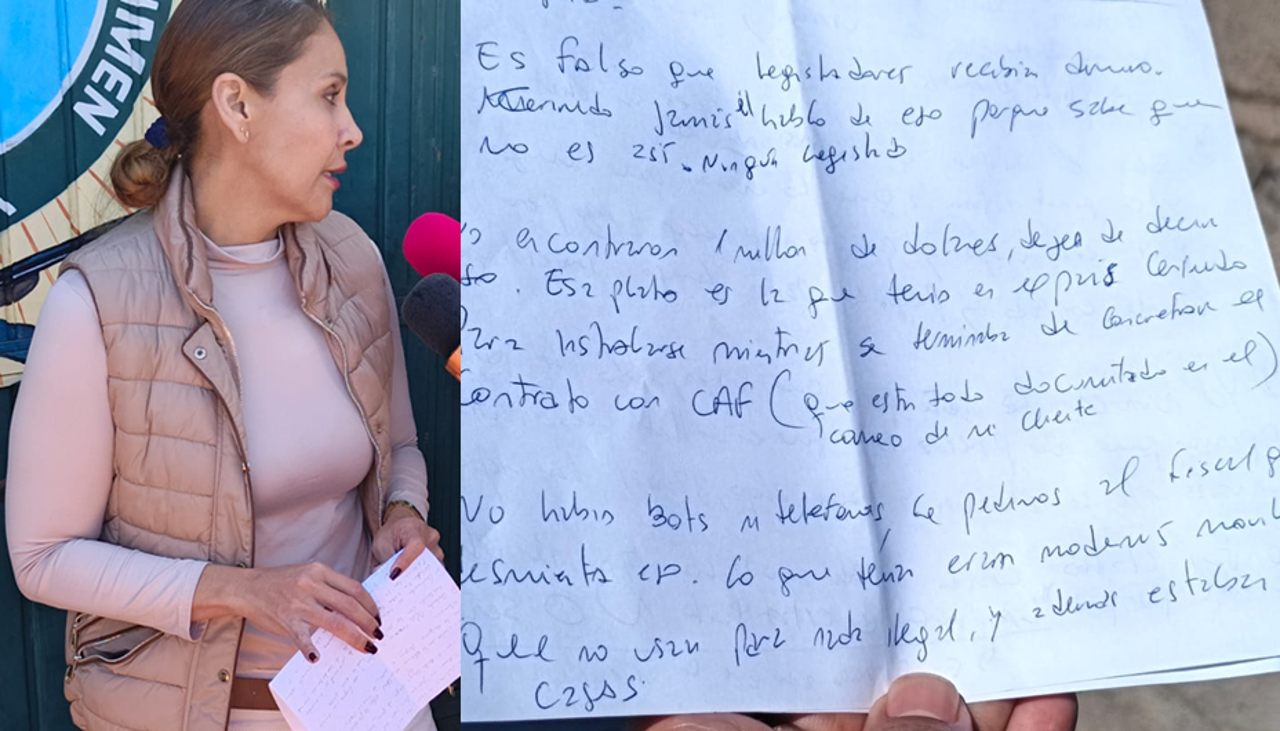 IMEN
Es falso que legisladores recibian dinero.
jamás él hablo de eso porque sabe que
no es así. Ningún legislad
encontraron 1 millon de dolares, dejen de decir
eso. Esa plata es la que tenia en el país
Para instalarse mientras se terminaba de concretar el
contrato con CAF (que esta todo documentado en el)
correo de mi cliente
No habia bots ni telefonos, le pedimos al fiscal q
desmienta eso. Lo que tenia eran modems
que no usan para nada ilegal, y ademas estaban